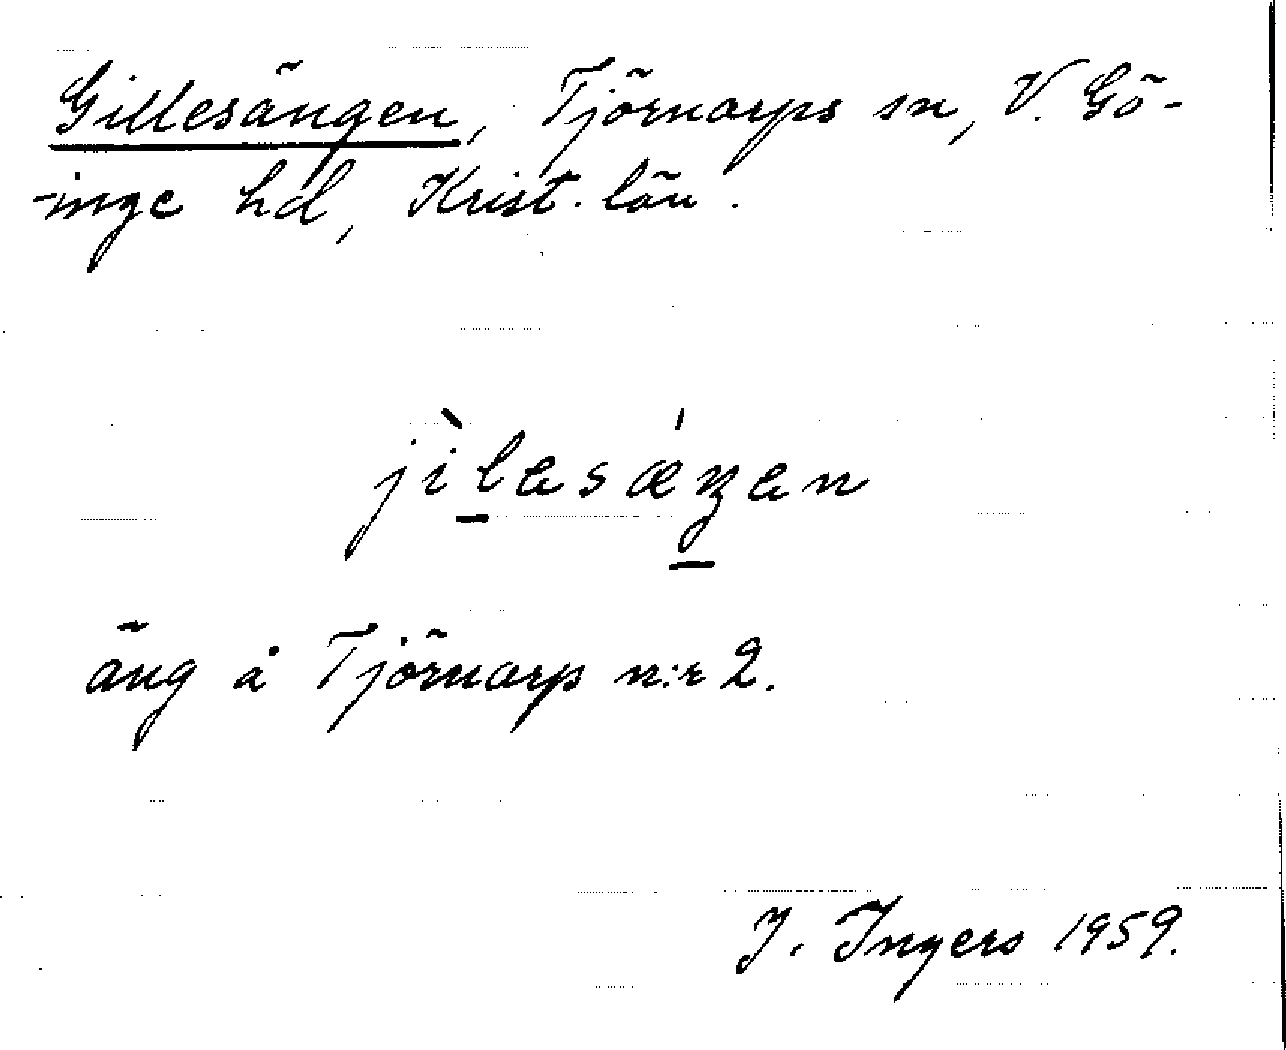 Gillesängen, Tjörnarps sn, V. Gö-
-inge hd, Krist. län.
jìlesǽŋen
äng å Tjörnarp n:r 2.
I. Ingers 1959.